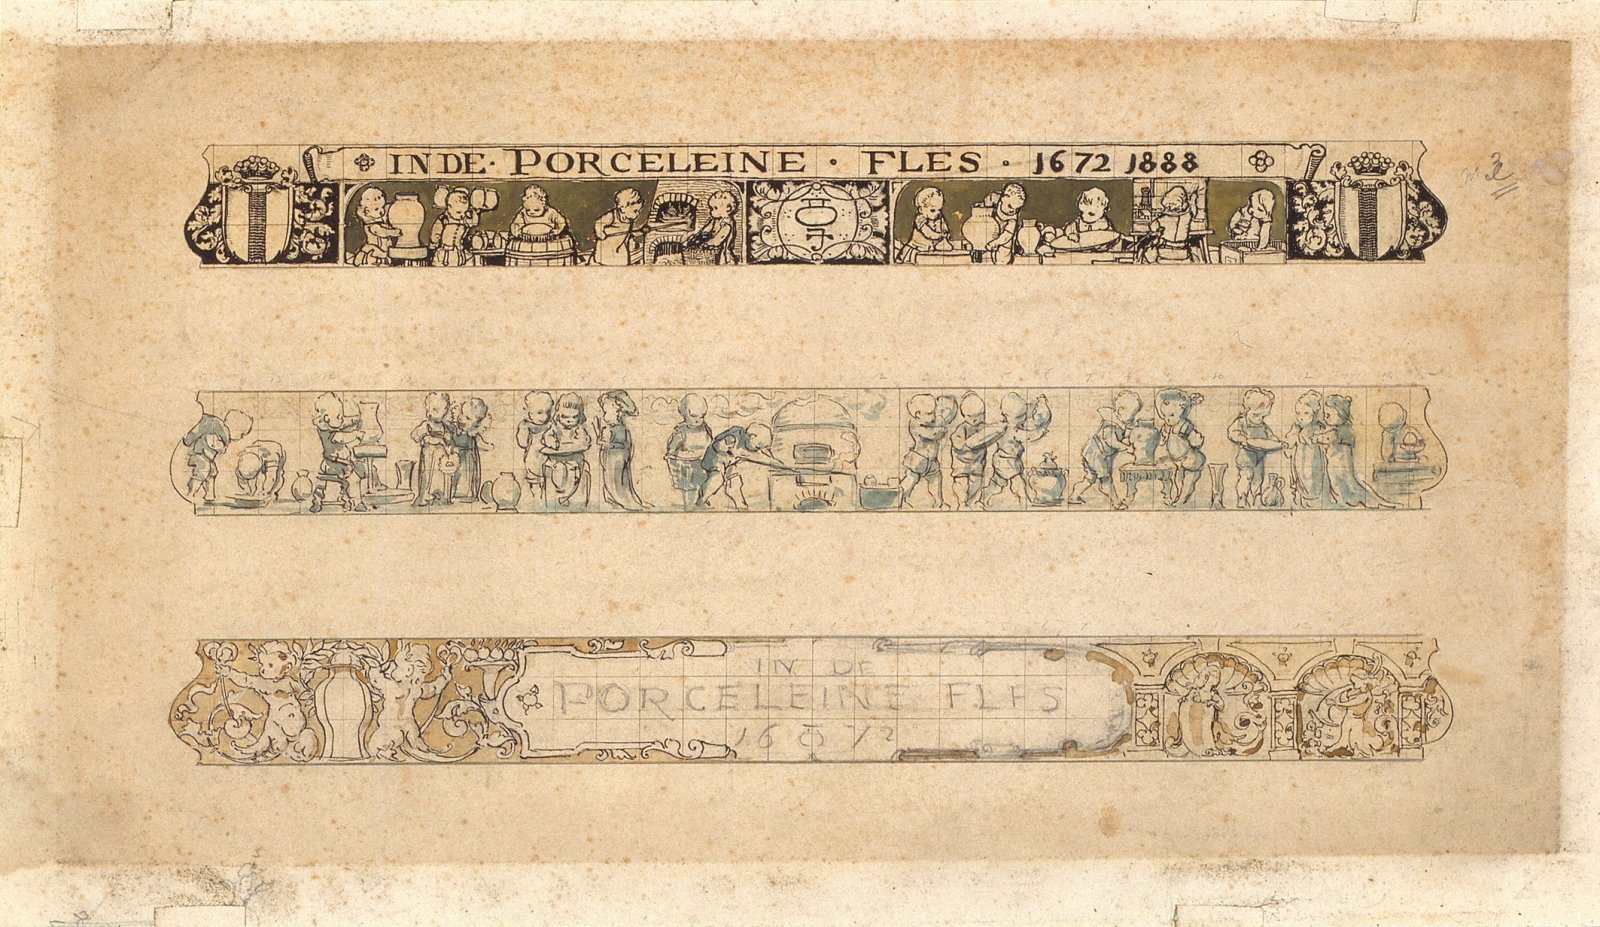 INDE · PORCELEINE · FLES · 1672 1888
IN DE
PORCELEINE FLES
16 72